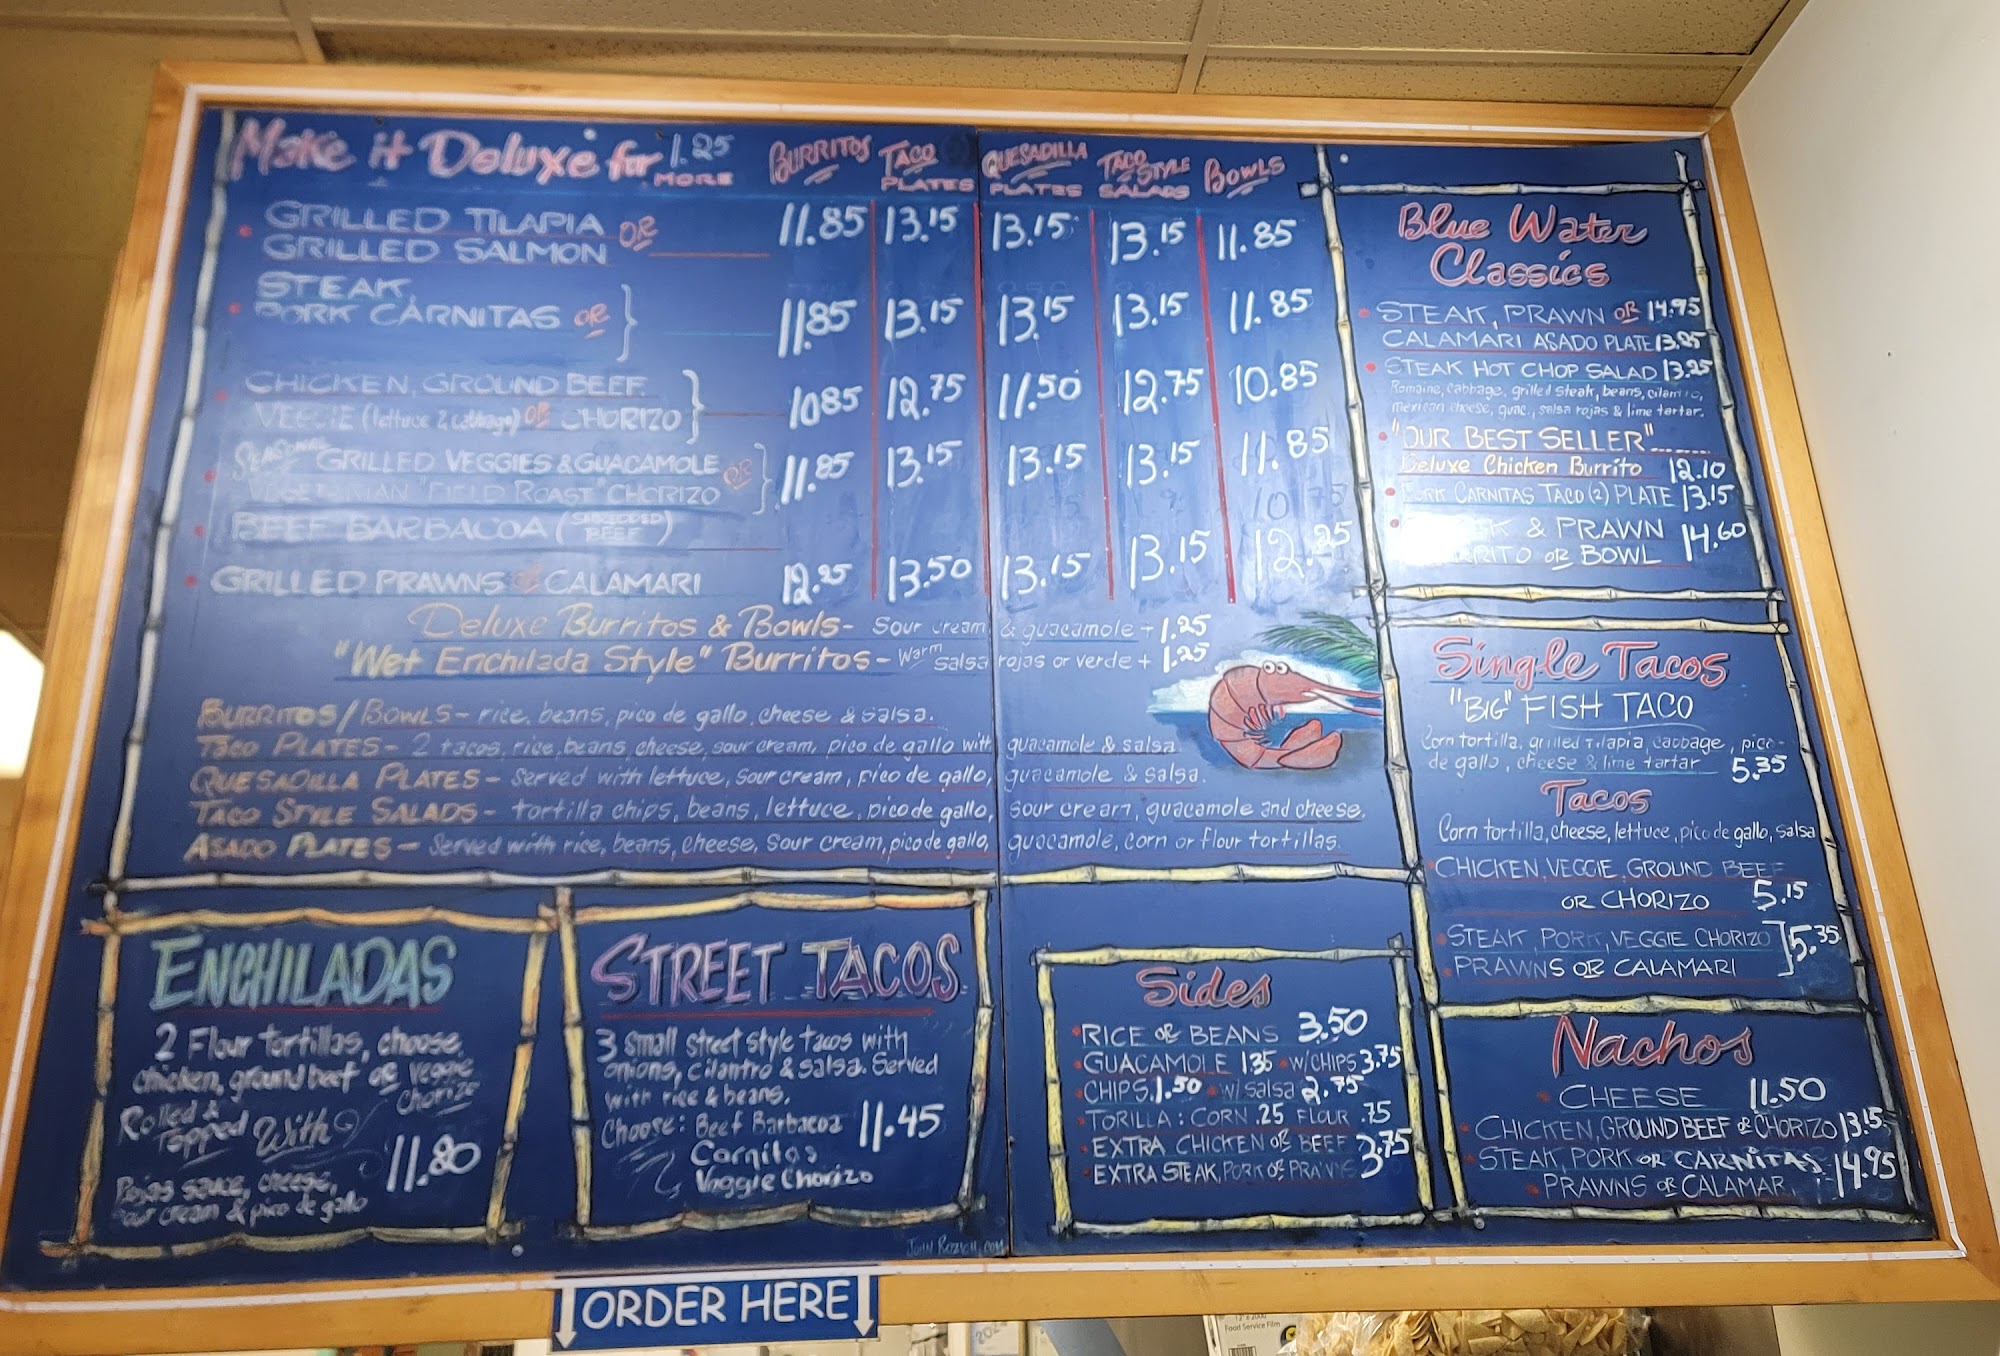 Make it Deluxe for 1.25 MORE
BURRITOS TACO PLATES QUESADILLA PLATES TACO STYLE SALADS BOWLS
GRILLED TILAPIA OR
GRILLED SALMON
11.85 13.15 13.15 13.15 11.85
STEAK,
PORK CARNITAS OR
11.85 13.15 13.15 13.15 11.85
CHICKEN, GROUND BEEF
VEGGIE (lettuce & cabbage) OR CHORIZO
10.85 12.75 11.50 12.75 10.85
SEASONAL GRILLED VEGGIES & GUACAMOLE OR
VEGETARIAN "FIELD ROAST" CHORIZO
11.85 13.15 13.15 13.15 11.85
BEEF BARBACOA (SHREDDED BEEF)
10.75
GRILLED PRAWNS CALAMARI
12.25 13.50 13.15 13.15 12.25
Deluxe Burritos & Bowls- Sour cream & guacamole + 1.25
"Wet Enchilada Style" Burritos- Warm salsa rojas or verde + 1.25
BURRITOS/BOWLS- rice, beans, pico de gallo, cheese & salsa.
TACO PLATES- 2 tacos, rice, beans, cheese, sour cream, pico de gallo with guacamole & salsa.
QUESADILLA PLATES- Served with lettuce, sour cream, pico de gallo, guacamole & salsa.
TACO STYLE SALADS- tortilla chips, beans, lettuce, pico de gallo, sour cream, guacamole and cheese.
ASADO PLATES- Served with rice, beans, cheese, sour cream, pico de gallo, guacamole, corn or flour tortillas.
ENCHILADAS
2 Flour tortillas, choose
chicken, ground beef or veggie
chorizo
Rolled &
Topped With
Rojas sauce, cheese,
sour cream & pico de gallo
11.80
STREET TACOS
3 small street style tacos with
onions, cilantro & salsa. Served
with rice & beans.
Choose: Beef Barbacoa 11.45
Carnitas
Veggie Chorizo
John Rozich.com
Sides
RICE OR BEANS 3.50
GUACAMOLE 1.35 W/CHIPS 3.75
CHIPS 1.50 w/ salsa 2.75
TORILLA: CORN .25 FLOUR .75
EXTRA CHICKEN OR BEEF
EXTRA STEAK, PORK OR PRAWNS
3.75
Blue Water
Classics
STEAK, PRAWN OR 14.95
CALAMARI ASADO PLATE 13.95
STEAK HOT CHOP SALAD 13.25
Romaine, cabbage, grilled steak, beans, cilantro,
mexican cheese, guac., salsa rojas & lime tartar.
"OUR BEST SELLER"........
Deluxe Chicken Burrito 12.10
PORK CARNITAS TACO (2) PLATE 13.15
& PRAWN
BURRITO OR BOWL 14.60
Single Tacos
"BIG" FISH TACO
Corn tortilla, grilled Tilapia, cabbage, pico-
de gallo, cheese & lime tartar 5.35
Tacos
Corn tortilla, cheese, lettuce, pico de gallo, salsa
CHICKEN, VEGGIE, GROUND BEEF
OR CHORIZO 5.15
STEAK, PORK, VEGGIE CHORIZO
PRAWNS OR CALAMARI
5.35
Nachos
CHEESE 11.50
CHICKEN, GROUND BEEF OR CHORIZO 13.15
STEAK, PORK OR CARNITAS
PRAWNS OR CALAMAR
14.95
ORDER HERE
Food Service Film